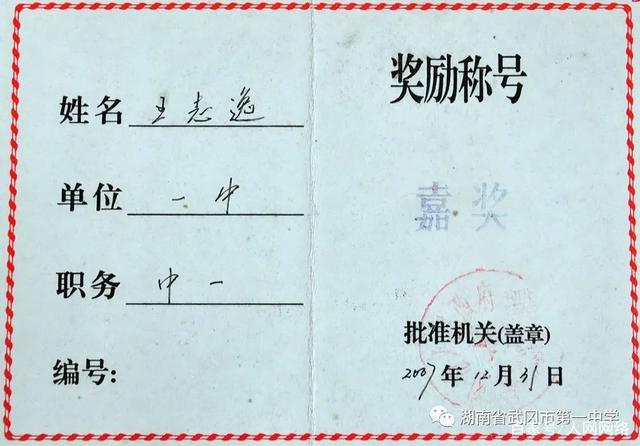 姓名 王志逸
单位 一中
职务 中一
编号:
奖励称号
嘉奖
批准机关(盖章)
2007年12月31日
湖南省武冈市第一中学